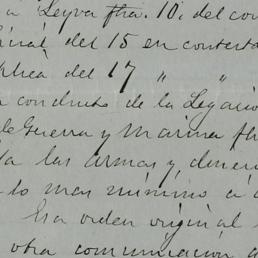 a Leyva fha. 10, del co
del 15 en contesta
del 17 " "
conducto de la Legació
de Guerra y Marina fh
las armas y dinero
lo mas minimo a
Esa orden original
otra comunicacion